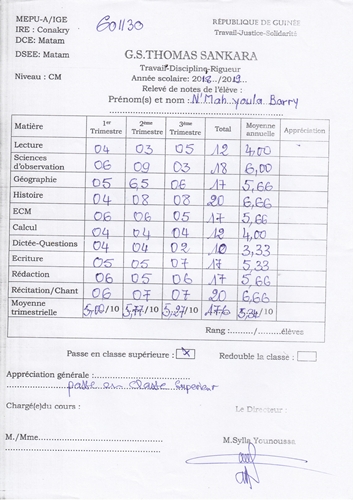 MEPU-A/IGE 601130 RÉPUBLIQUE DE GUINÉE
IRE : Conakry Travail-Justice-Solidarité
DCE: Matam
DSEE: Matam G.S.THOMAS SANKARA
Travail-Discipline-Rigueur
Niveau : CM Année scolaire: 2018../2019..
Relevé de notes de l'élève :
Prénom(s) et nom : N'Mah Yaula Barry
Matière 1er Trimestre 2ème Trimestre 3ème Trimestre Total Moyenne annuelle Appréciation
Lecture 04 03 05 12 4,00
Sciences d'observation 06 09 03 18 6,00
Géographie 05 6,5 06 17 5,66
Histoire 04 08 08 20 6,66
ECM 06 06 05 17 5,66
Calcul 04 04 04 12 4,00
Dictée-Questions 04 04 02 10 3,33
Ecriture 05 05 07 17 5,33
Rédaction 06 05 06 17 5,66
Récitation/Chant 06 07 07 20 6,66
Moyenne trimestrielle 5,00/10 5,77/10 5,27/10 176 5,34/10
Rang :........./.........élèves
Passe en classe supérieure : X Redouble la classe :
Appréciation générale :
passe en Classe Superieur
Chargé(e)du cours : Le Directeur
M./Mme M.Sylla Younoussa